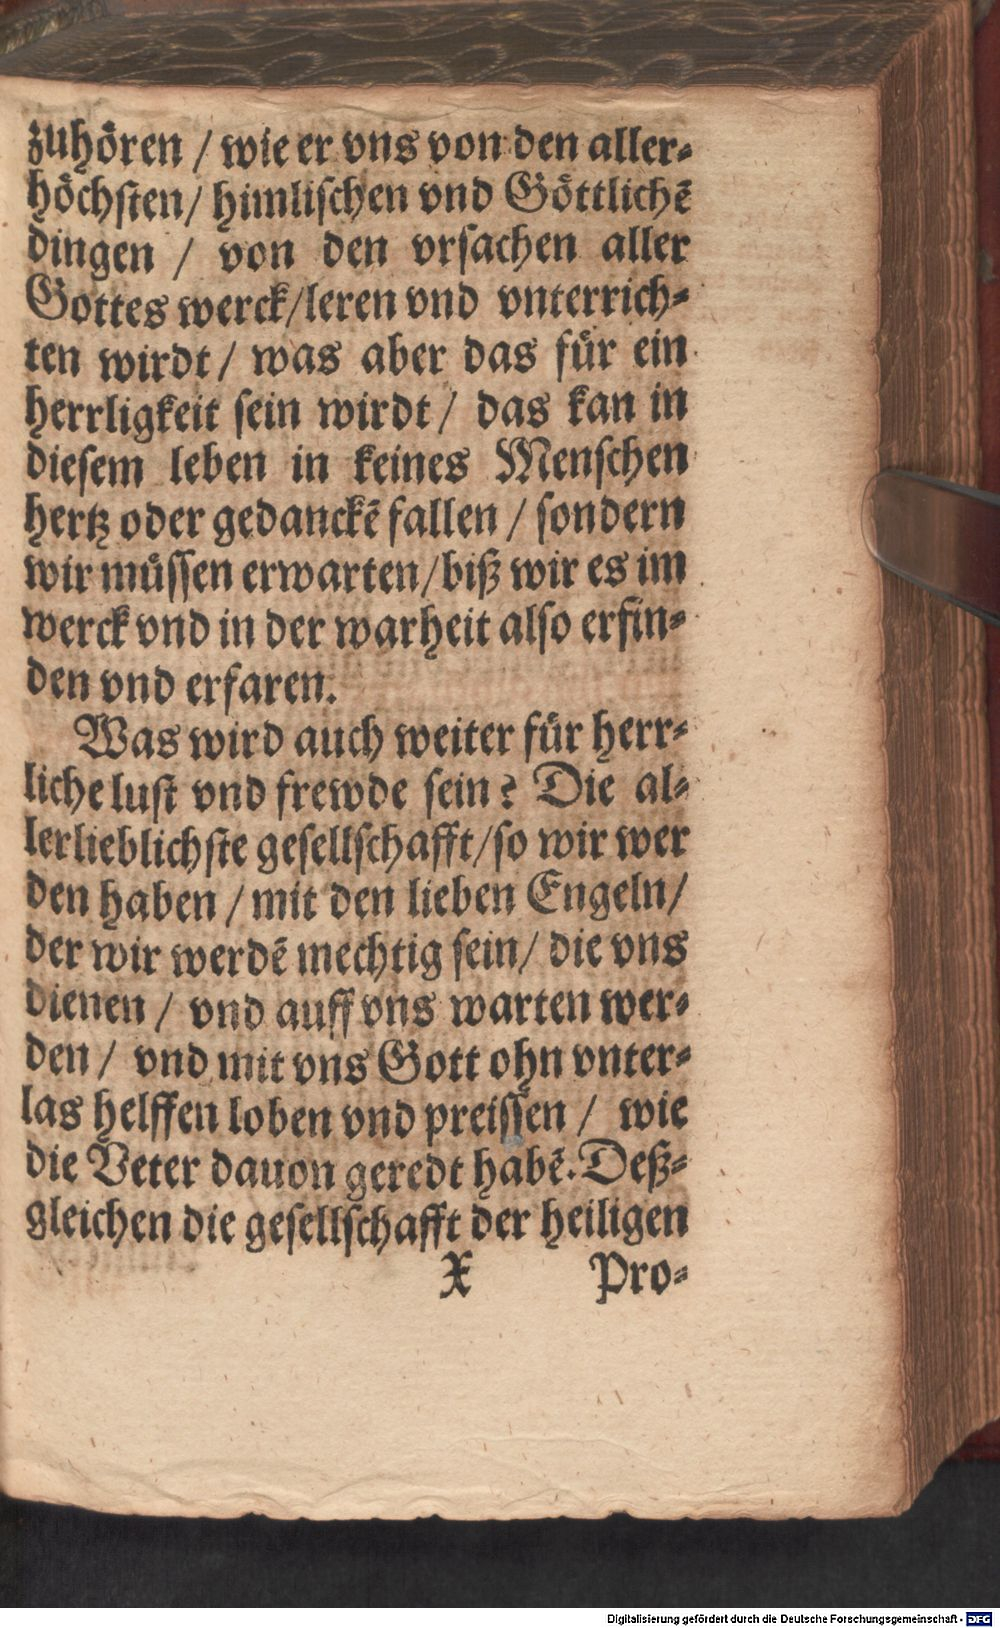 zuhören / wie er vns von den aller-
höchsten / himlischen vnd Göttlichē
dingen / von den vrsachen aller
Gottes werck / leren vnd vnterrich-
ten wirdt / was aber das für ein
herrligkeit sein wirdt / das kan in
diesem leben in keines Menschen
hertz oder gedanckē fallen / sondern
wir müssen erwarten / biß wir es im
werck vnd in der warheit also erfin-
den vnd erfaren.
Was wird auch weiter für herr-
liche lust vnd frewde sein? Die al-
lerlieblichste gesellschafft / so wir wer
den haben / mit den lieben Engeln /
der wir werdē mechtig sein / die vns
dienen / vnd auff vns warten wer-
den / vnd mit vns Gott ohn vnter-
las helffen loben vnd preissen / wie
die Veter dauon geredt habē. Deß-
gleichen die gesellschafft der heiligen
X Pro-
Digitalisierung gefördert durch die Deutsche Forschungsgemeinschaft - DFG